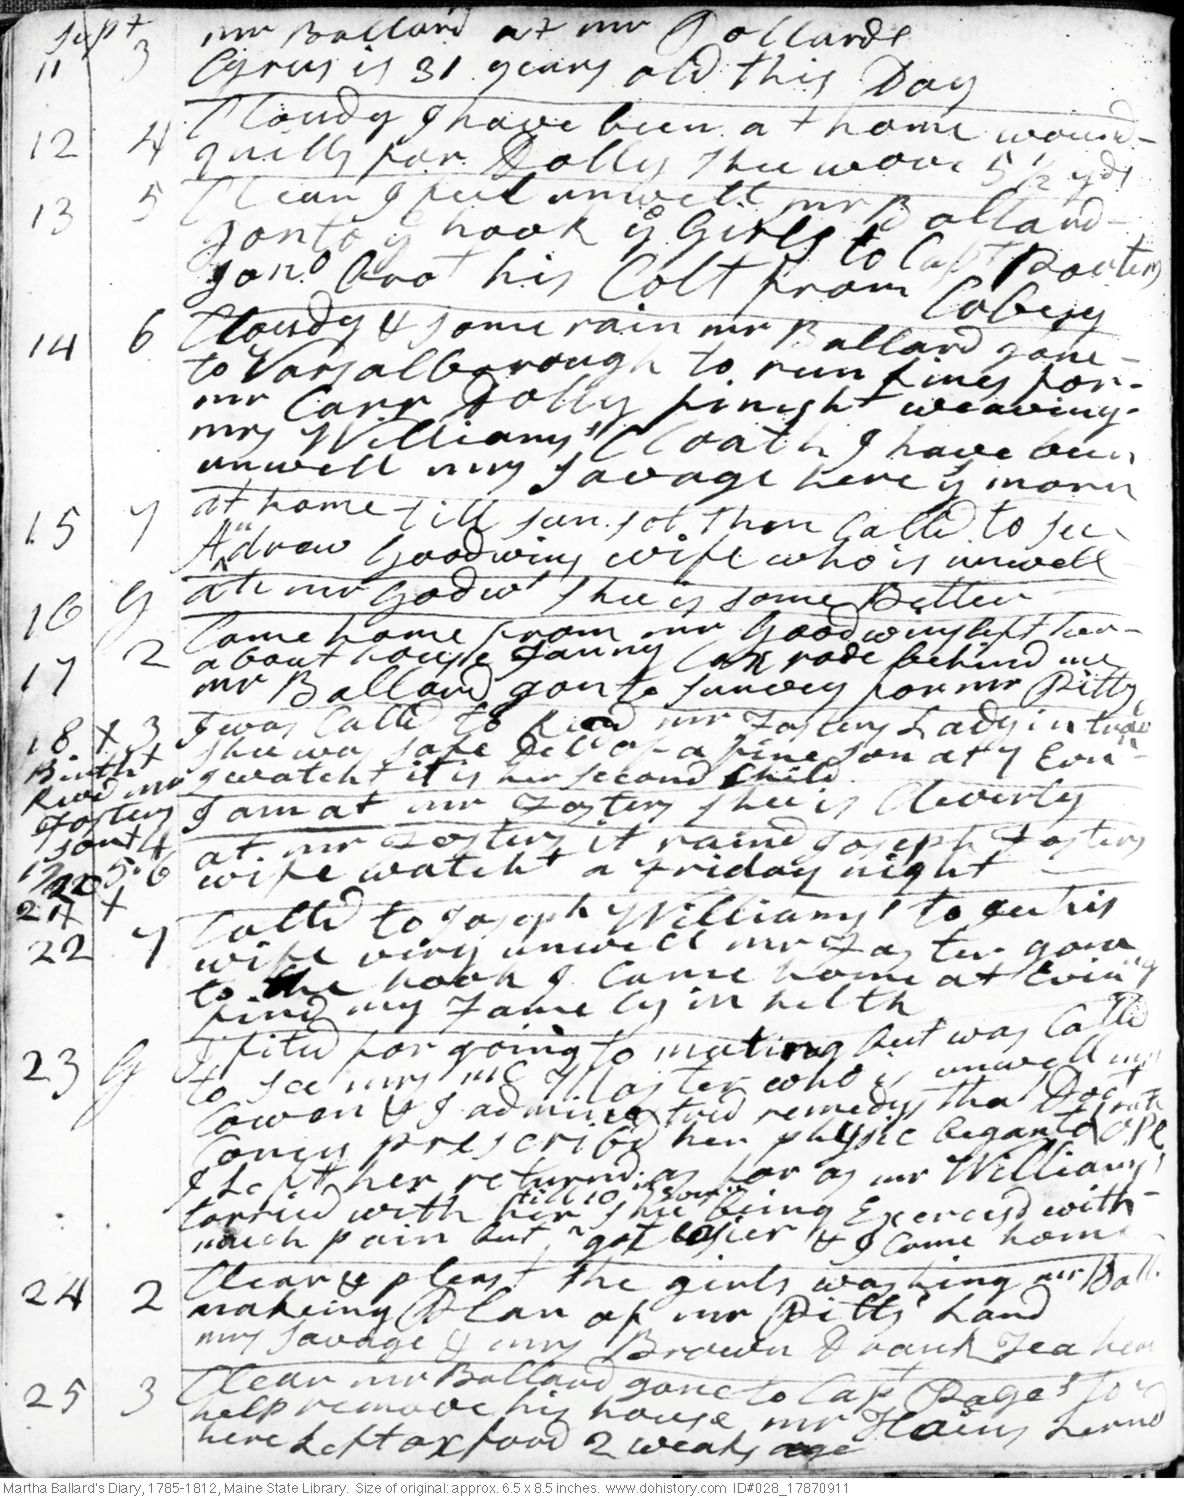 Sept
11 3 mr Ballard at mr Pollards
Cyrus is 31 years old this Day
12 4 Cloudy I have been at home wound
quills for Dolly Shee wove 5 1/2 yds
13 5 Clear I feel unwell mr Ballard
gon to ye hook ye Girls to Capt
Jono brot his Colt from Cobesy
14 6 Cloudy & some rain mr Ballard gone
to Varsalborough to run lines for
mr Carr Dolly finisht weaving
mrs Williams' Cloath I have been
unwell mrs Savage here ye morn
15 7 at home till sun sot then Calld to see
Andrew Goodwins wife who is unwell
16 G at mr Godws Shee is some Better
17 2 Came home from mr Goodwins left her
about house Fanny Cox rode behind me
mr Ballard gon to survey for mr Pitts
18 x 3 I was Calld to mr Fosters Lady in
Birth + Shee was safe Deld of a fine son at 7 Evn
Recvd mr I watcht it is her second Child
Fosters I am at mr Fosters shee is Cleverly
son + 4 at mr Fosters it raind Joseph Fosters
19/20 5.6 wife watcht a Friday night
21 x +
22 7 Calld to Joseph Williams' to see his
wife very unwell mr Foster gone
to the hook I came home at Evinng
find my Famely in helth
23 G I fitted for going to meting but was Calld
to see mrs McMaster who is unwell mrs
Cowen & I administred remedys that Doct
Coney prescribd her physic began to ope
I Left her returnd as far as mr Williams
tarried with her till 10 Evn shee being Exercisd with
much pain but got Easier & I Came home
24 2 Clear & pleast the girls washing mr Ball
makeing A Plan of mr Pitts' Land
mrs Savage & mrs Brown Drank Tea here
25 3 Clear mr Ballard gone to Capt Page's for
help remoove his house mr Hains
here Left oxford 2 weaks age
Martha Ballard's Diary, 1785-1812, Maine State Library. Size of original: approx. 6.5 x 8.5 inches. www.dohistory.com ID#028_17870911